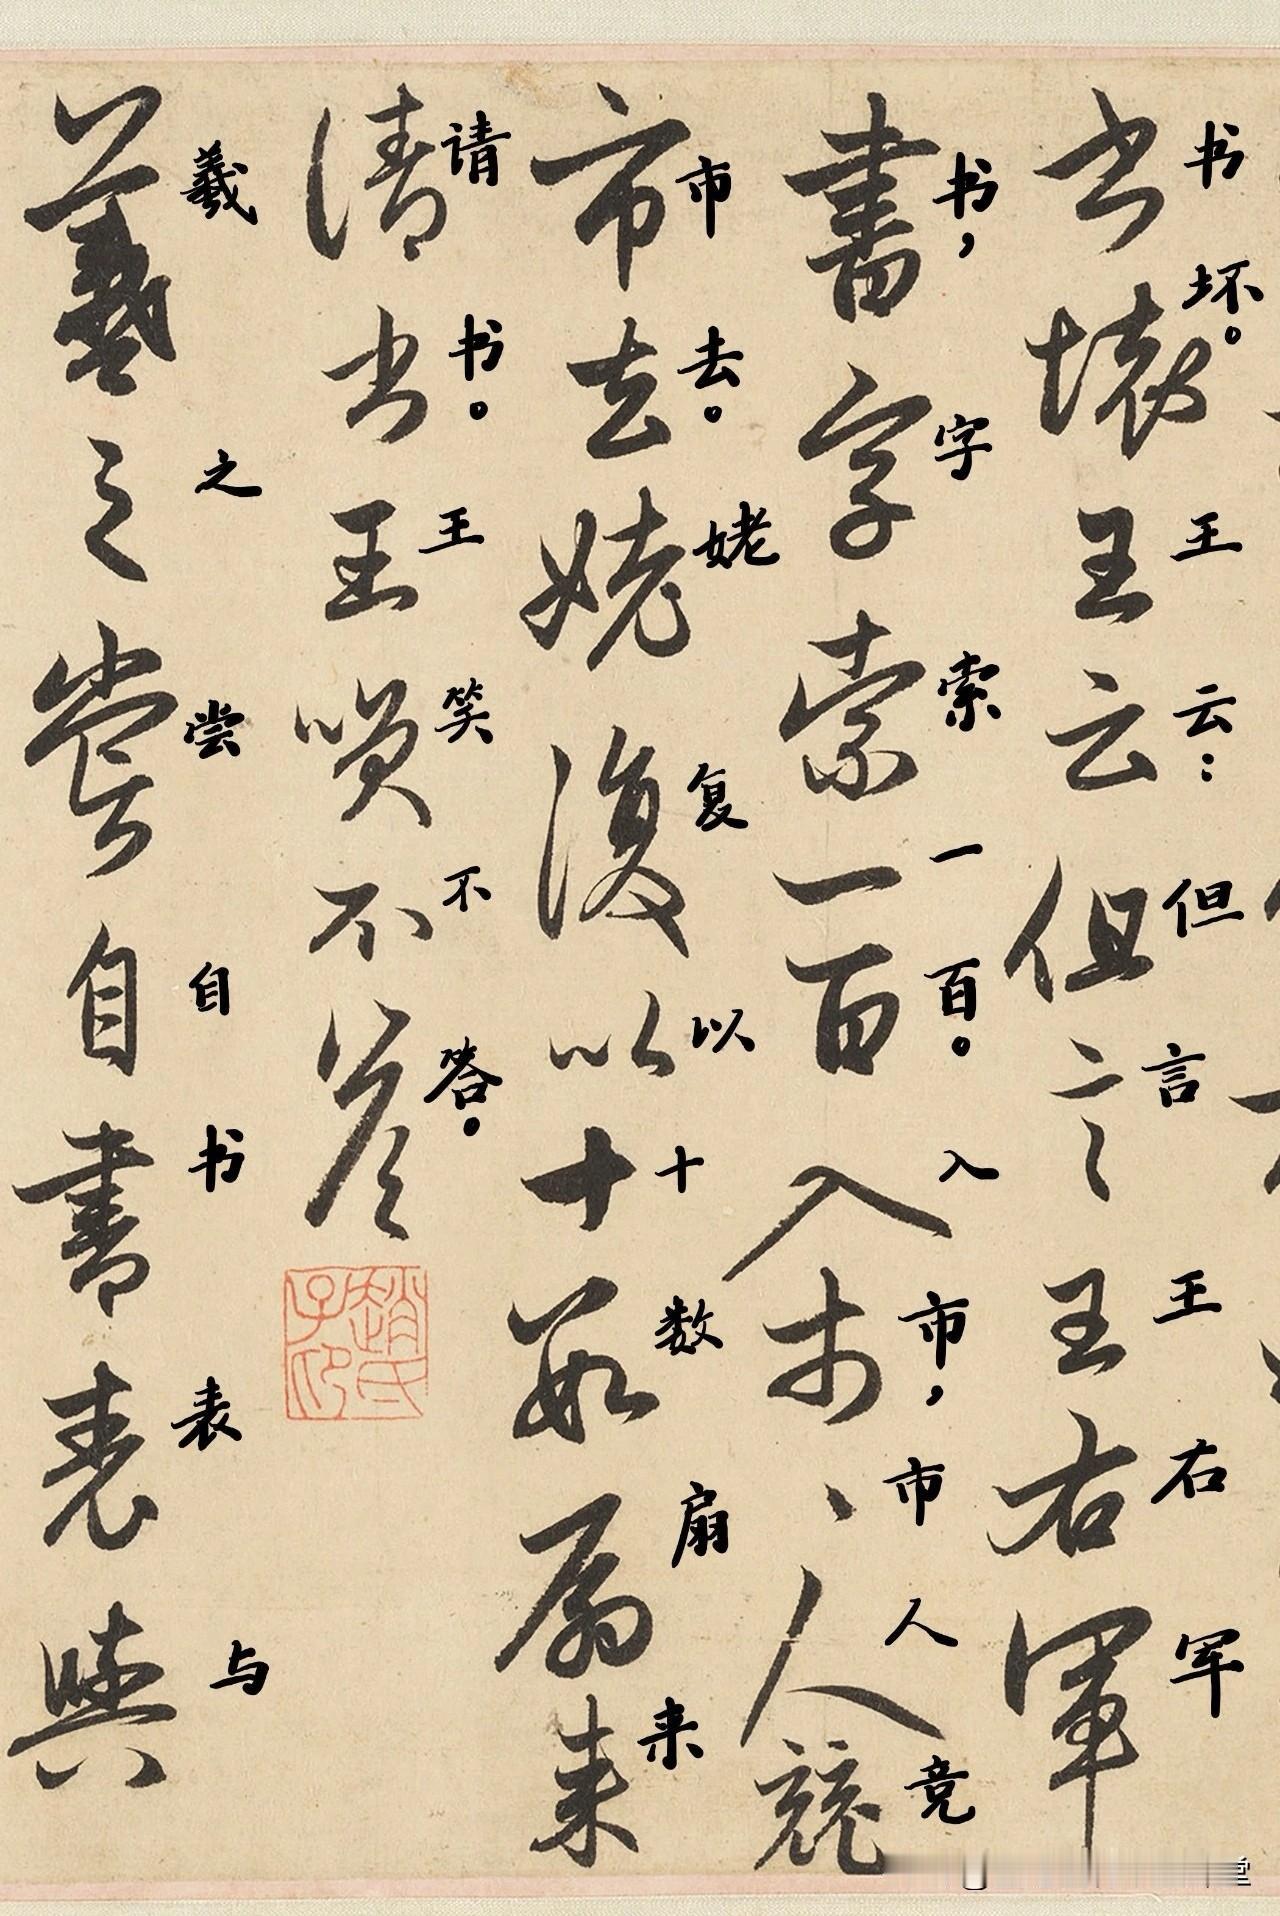 书坏。王云：但言王右军
书壞王云但言王右軍
书，字索一百。入市，市人竞
書字索一百入市、人競
市去。姥复以十数扇来
市去姥復以十數扇來
请书。王笑不答。
請书王咲不答
趙氏子印
羲之尝自书表与
羲之嘗自書表與